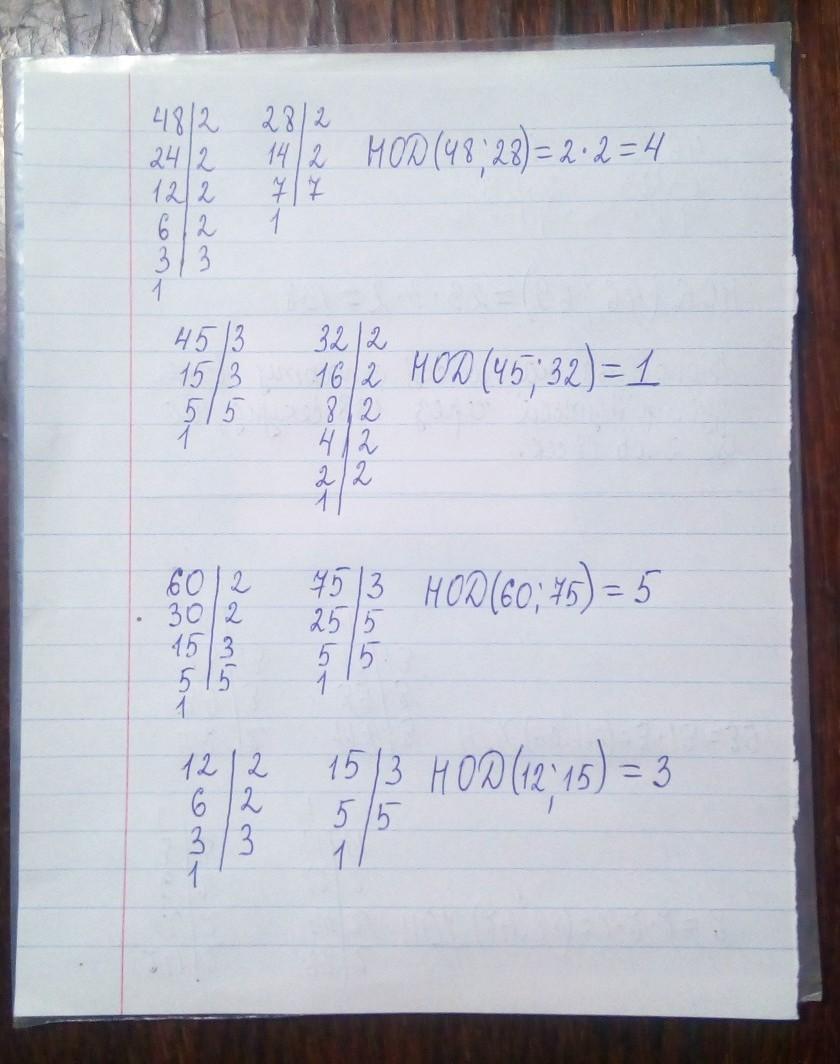 48 | 2 28 | 2
24 | 2 14 | 2 НОД(48;28) = 2·2 = 4
12 | 2 7 | 7
6 | 2 1
3 | 3
1
45 | 3 32 | 2
15 | 3 16 | 2 НОД(45;32) = 1
5 | 5 8 | 2
1 4 | 2
2 | 2
1
60 | 2 75 | 3 НОД(60;75) = 5
30 | 2 25 | 5
15 | 3 5 | 5
5 | 5 1
1
12 | 2 15 | 3 НОД(12;15) = 3
6 | 2 5 | 5
3 | 3 1
1